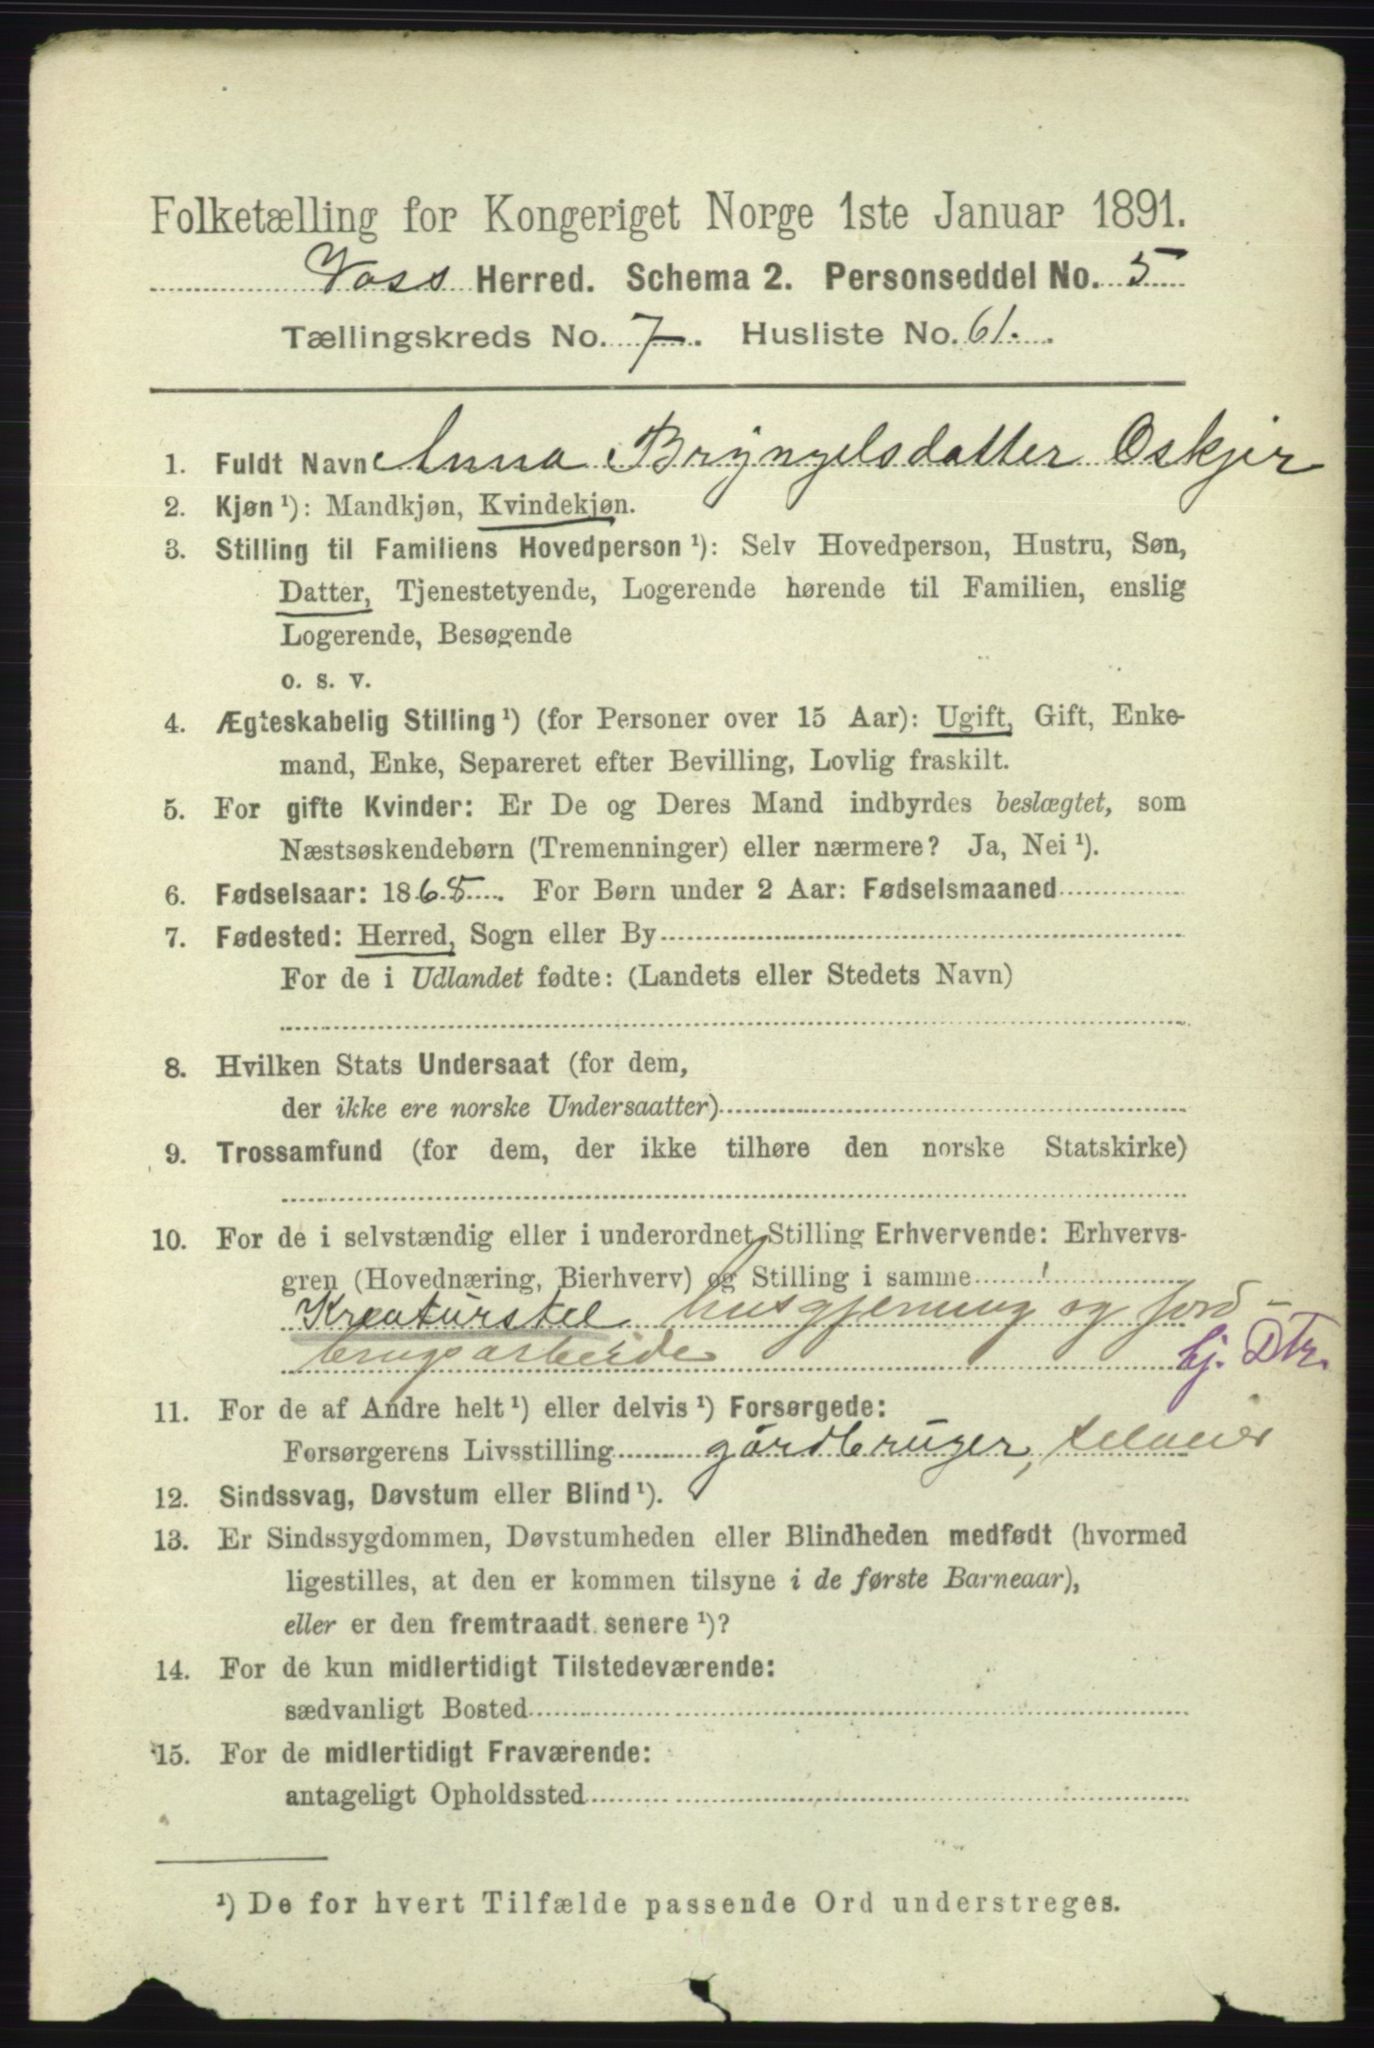 Folketælling for Kongeriget Norge 1ste Januar 1891.
Voss Herred. Schema 2. Personseddel No. 5
Tællingskreds No. 7. Husliste No. 61.
1. Fuldt Navn Anna Bryngelsdatter Oskjer
2. Kjøn ¹): Mandkjøn, Kvindekjøn.
3. Stilling til Familiens Hovedperson ¹): Selv Hovedperson, Hustru, Søn,
Datter, Tjenestetyende, Logerende hørende til Familien, enslig
Logerende, Besøgende
o. s. v.
4. Ægteskabelig Stilling ¹) (for Personer over 15 Aar): Ugift, Gift, Enke-
mand, Enke, Separeret efter Bevilling, Lovlig fraskilt.
5. For gifte Kvinder: Er De og Deres Mand indbyrdes beslægtet, som
Næstsøskendebørn (Tremenninger) eller nærmere? Ja, Nei ¹).
6. Fødselsaar: 1868. For Børn under 2 Aar: Fødselsmaaned
7. Fødested: Herred, Sogn eller By
For de i Udlandet fødte: (Landets eller Stedets Navn)
8. Hvilken Stats Undersaat (for dem,
der ikke ere norske Undersaatter)
9. Trossamfund (for dem, der ikke tilhøre den norske Statskirke)
10. For de i selvstændig eller i underordnet Stilling Erhvervende: Erhvervs-
gren (Hovednæring, Bierhverv) og Stilling i samme
Kreaturstel husgjerning og jord-
brugsarbeide hj. Dtr.
11. For de af Andre helt ¹) eller delvis ¹) Forsørgede:
Forsørgerens Livsstilling gårdbruger, selveier
12. Sindssvag, Døvstum eller Blind ¹).
13. Er Sindssygdommen, Døvstumheden eller Blindheden medfødt (hvormed
ligestilles, at den er kommen tilsyne i de første Barneaar),
eller er den fremtraadt senere ¹)?
14. For de kun midlertidigt Tilstedeværende:
sædvanligt Bosted
15. For de midlertidigt Fraværende:
antageligt Opholdssted
¹) De for hvert Tilfælde passende Ord understreges.